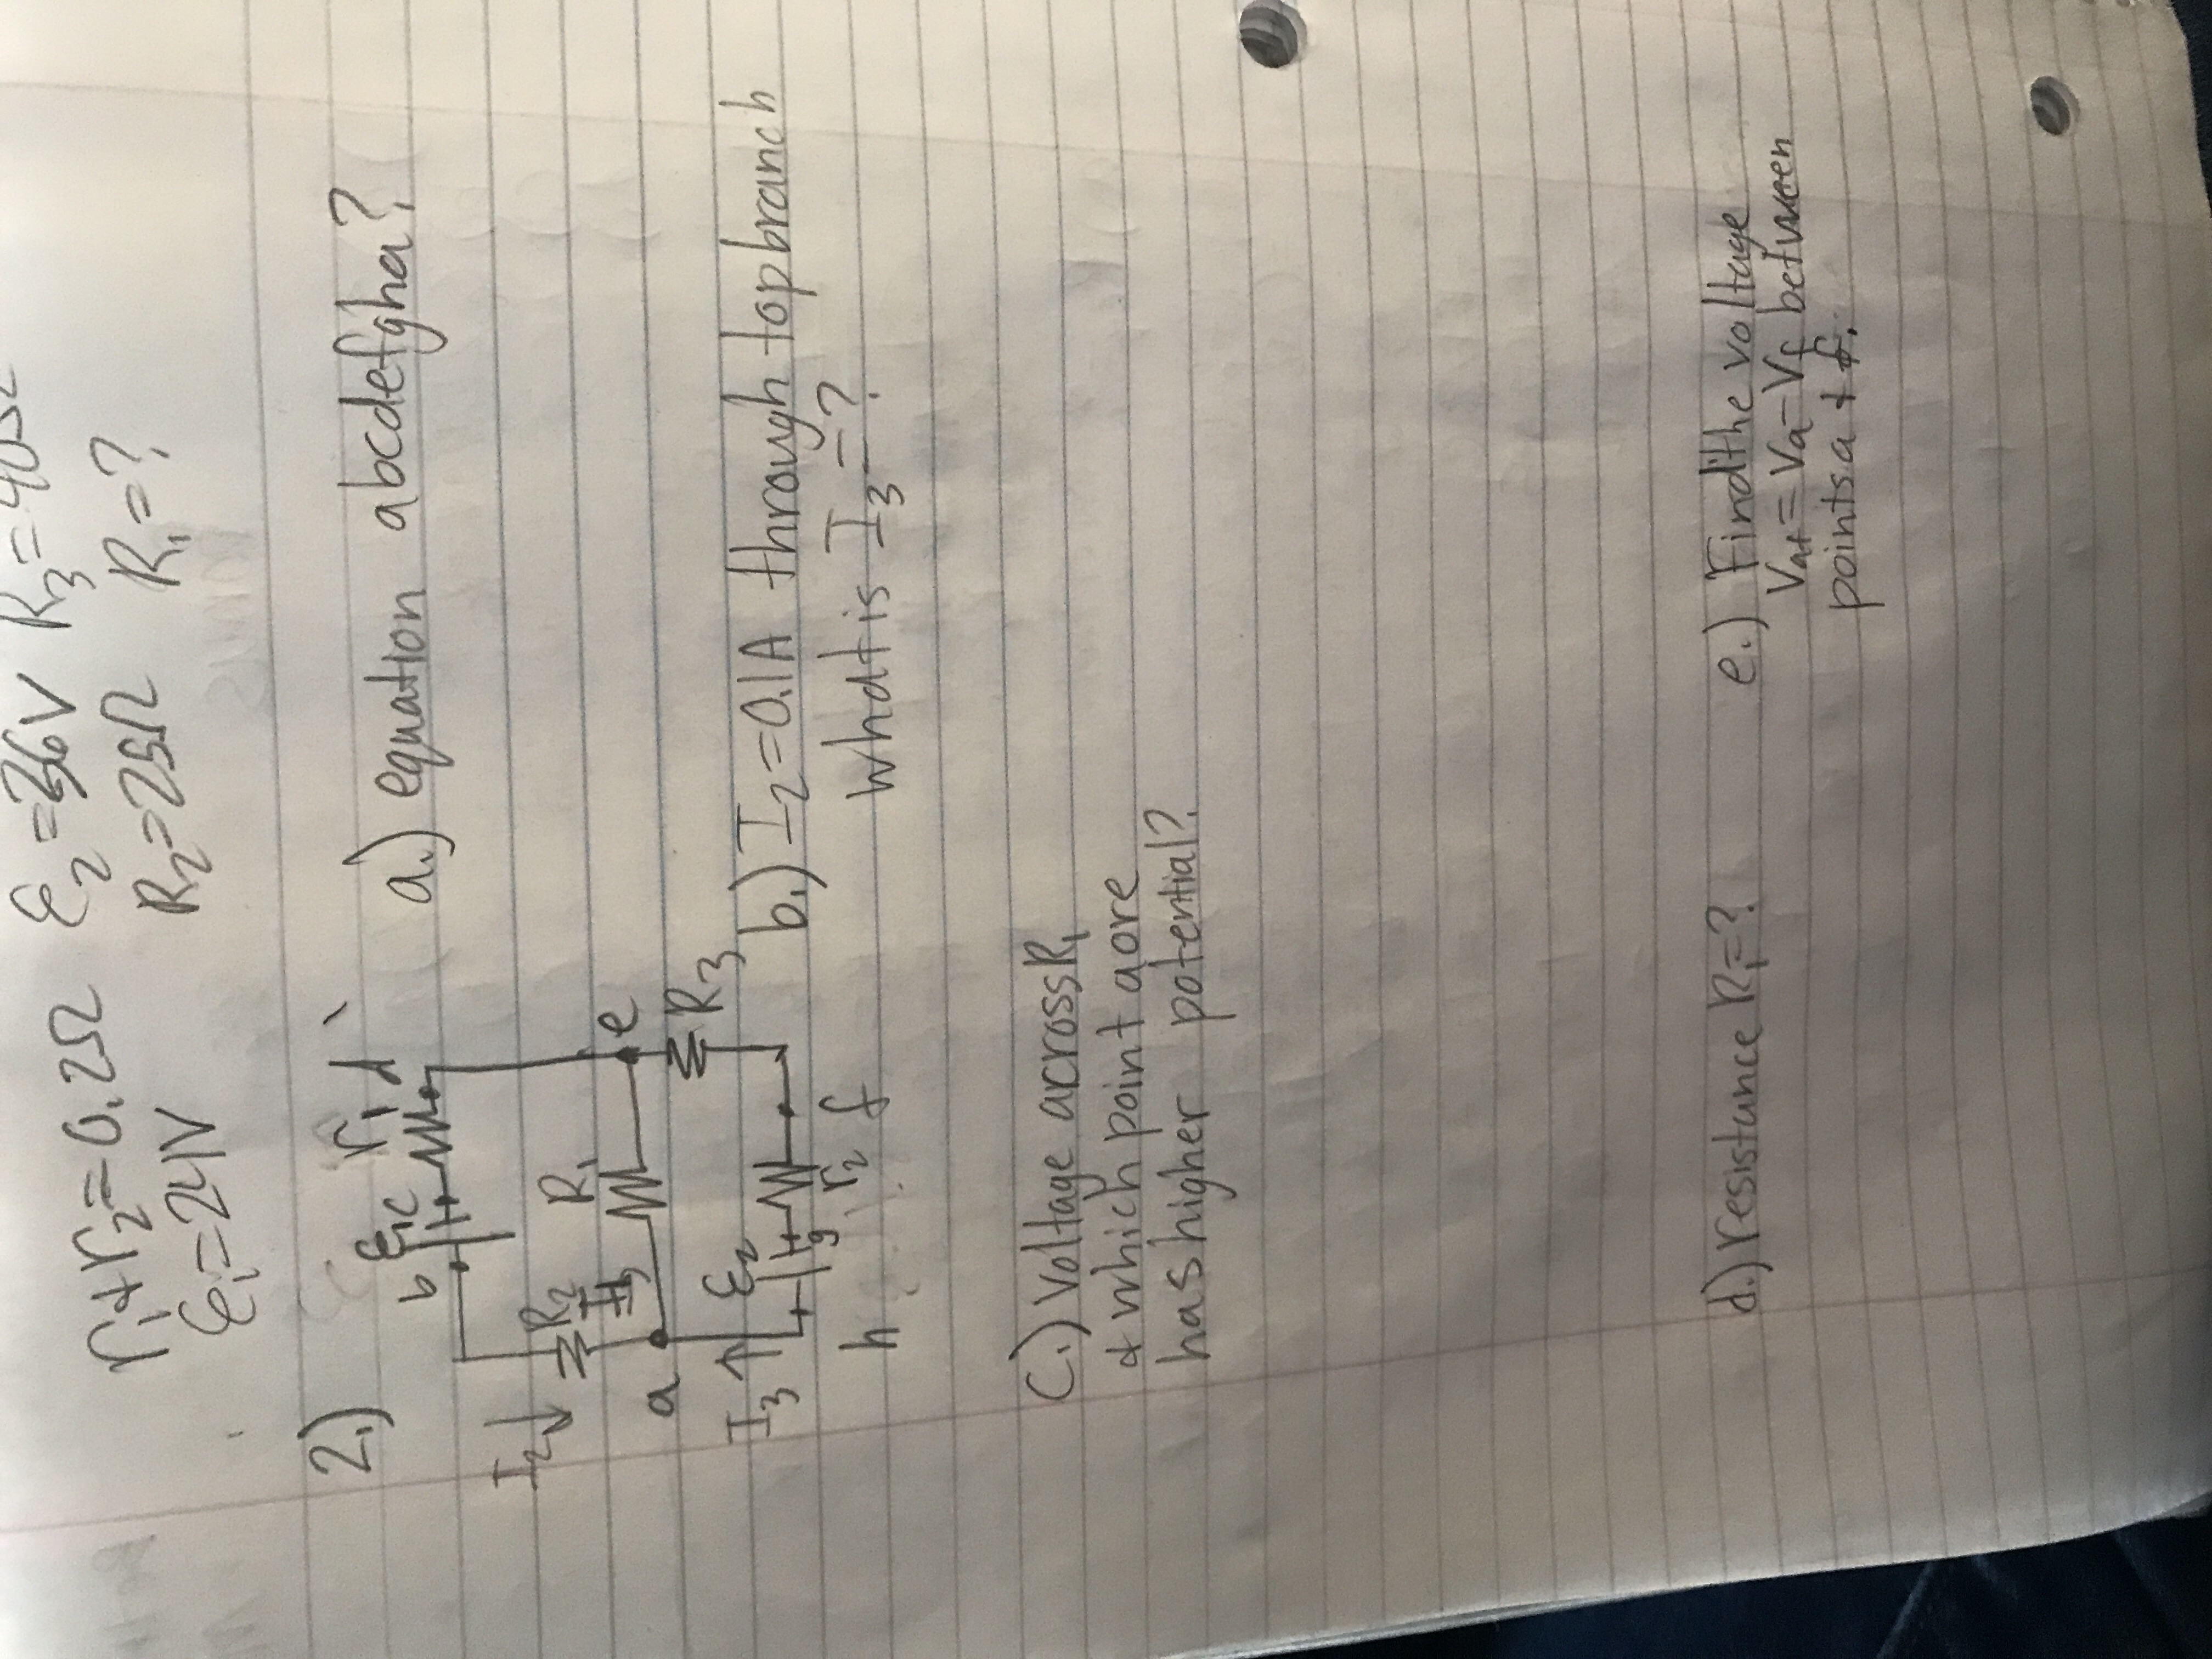 r₁+r₂=0.2Ω ε₂=36V R₃=40Ω
ε₁=24V R₂=25Ω R₁=?
2.)
ε₁ r₁ d
b c
a.) equation abcdefgha?
I₂ R₂
R₁
a e
R₃
I₃ ε₂
g r₂ f
h
b.) I₂=0.1A through top branch
what is I₃=?
C.) Voltage across R₁
& which point a or e
has higher potential?
d.) resistance R₁=?
e.) Find the voltage
Vaf = Va-Vf between
points a & f.